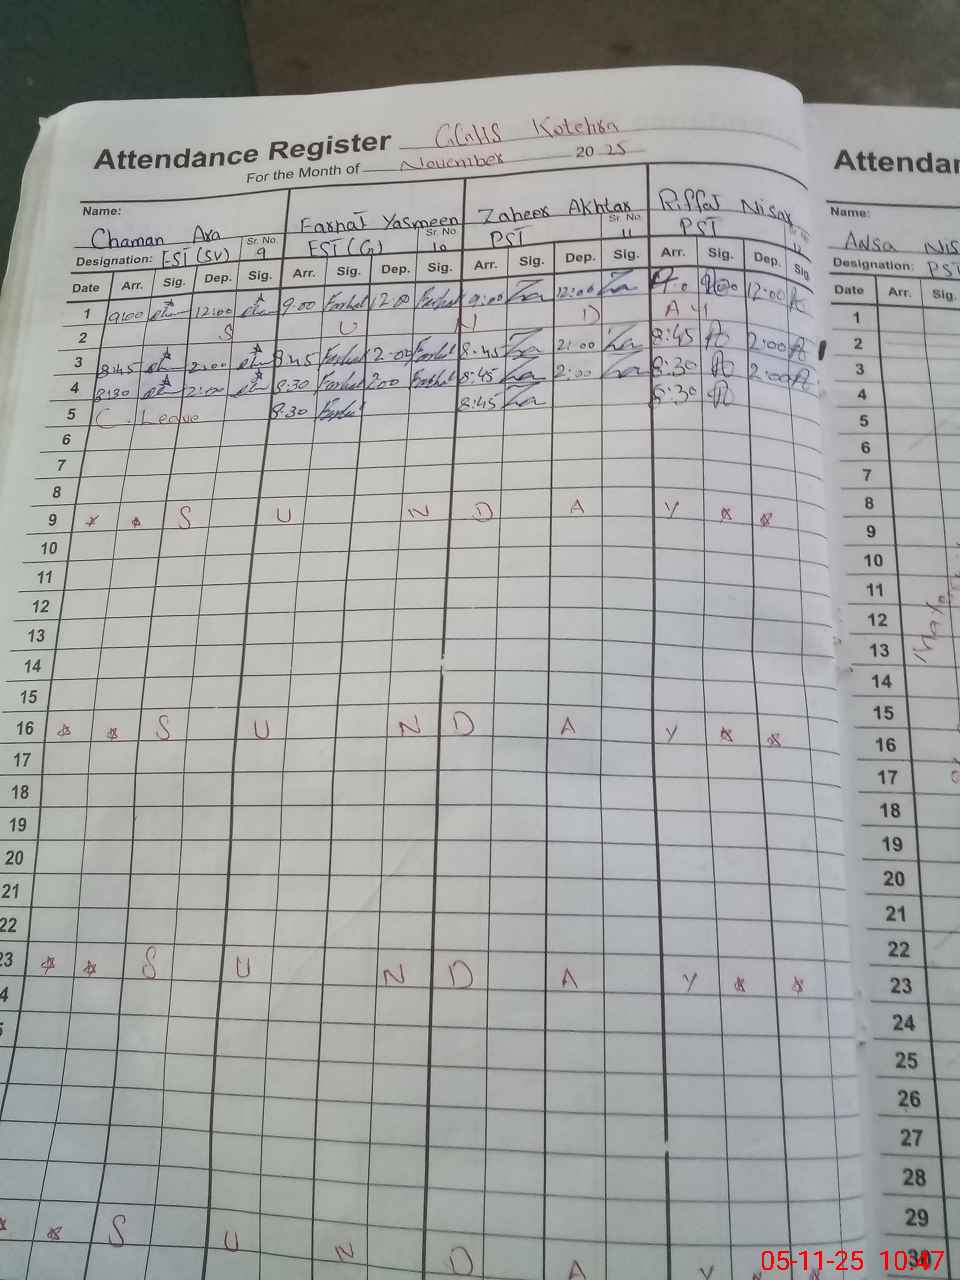 Attendance Register GGHS Kotehra
For the Month of November 2025
Name: Chaman Ara Farhat Yasmeen Zaheer Akhtar Riffat Nisar
Designation: EST (SV) Sr. No. 9 EST (G) Sr. No. 10 PST Sr. No. 11 PST
Date Arr. Sig. Dep. Sig. Arr. Sig. Dep. Sig. Arr. Sig. Dep. Sig. Arr. Sig. Dep. Sig.
1 9:00 12:00 9:00 Farhat 12:00 Farhat 9:00 12:00 9:00 12:00
2 S U N D A Y
3 8:45 2:00 8:45 Farhat 2:00 Farhat 8:45 2:00 8:45 2:00
4 8:30 2:00 8:30 Farhat 2:00 Farhat 8:45 2:00 8:30 2:00
5 C. Leave 8:30 Farhat 8:45 8:30
6
7
8
9 * * S U N D A Y * *
10
11
12
13
14
15
16 * * S U N D A Y * *
17
18
19
20
21
22
23 * * S U N D A Y * *
4
5
* * S U N D A Y
Attendan
Name:
Ansa Nis
Designation: PST
Date Arr. Sig.
1
2
3
4
5
6
7
8
9
10
11
12
13
14
15
16
17
18
19
20
21
22
23
24
25
26
27
28
29
30
05-11-25 10:47